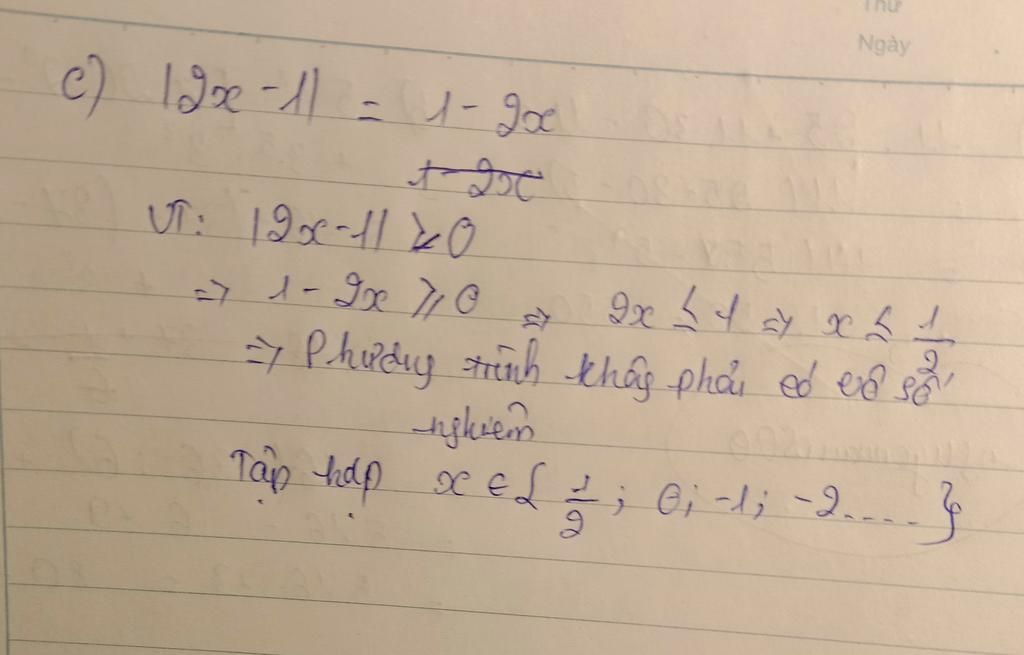 Thứ
Ngày
c) |2x - 1| = 1 - 2x
1 - 2x
VT: |2x - 1| ≥ 0
=> 1 - 2x ≥ 0 => 2x ≤ 1 => x ≤ 1/2
=> Phương trình không phải có vô số
nghiệm
Tập hợp x ∈ { 1/2 ; 0; -1; -2.... }